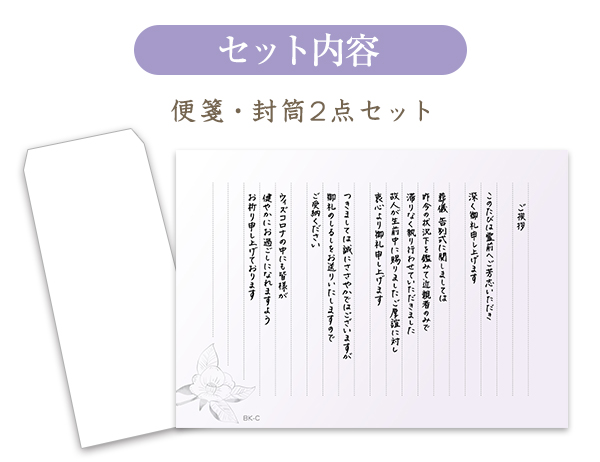 セット内容
便箋・封筒2点セット
ご挨拶
このたびは霊前へご芳志いただき
深く御礼申し上げます
葬儀 告別式に関しましては
昨今の状況下を鑑みて近親者のみで
滞りなく執り行わせていただきました
故人が生前中に賜りましたご厚誼に対し
衷心より御礼申し上げます
つきましては誠にささやかではございますが
御礼のしるしをお送りいたしますので
ご受納ください
ウィズコロナの中にも皆様が
健やかにお過ごしになれますよう
お祈り申し上げております
BK-C